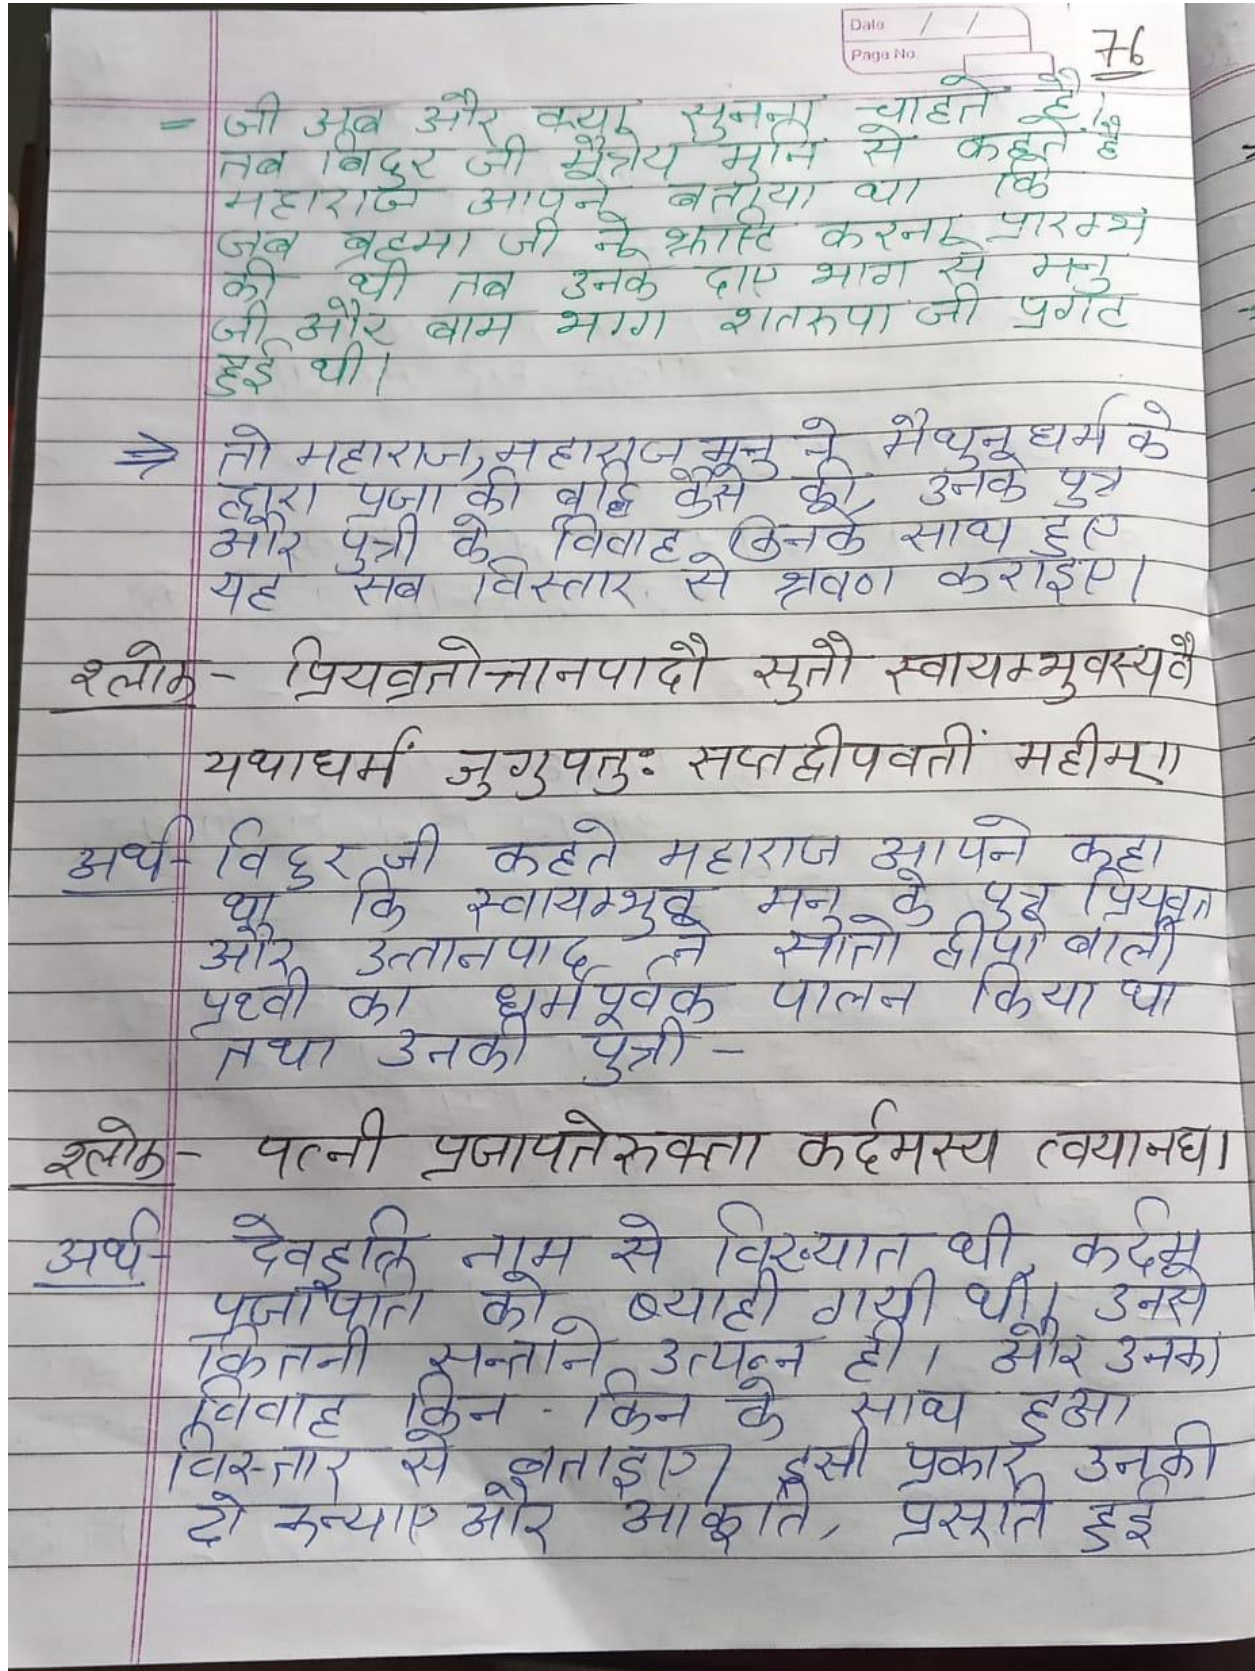 Date / /
Page No.
76
= जी अब और क्या सुनना चाहते हैं।
तब बिदुर जी मैत्रेय मुनि से कहते है
महाराज आपने बताया था कि
जब ब्रह्मा जी ने करना प्रारम्भ
की थी तब उनके दाए भाग से मनु
जी और बाम भाग शतरुपा जी प्रगट
हुई थी।
⇒ तो महाराज, महाराज मनु ने मैथुन धर्म के
द्वारा प्रजा की कैसे की, उनके पुत्र
और पुत्री के विवाह किनके साथ हुए
यह सब विस्तार से श्रवण कराइए।
श्लोक - प्रियव्रतोत्तानपादौ सुतौ स्वायम्भुवस्यवै
यथाधर्मं जुगुपतुः सप्तद्वीपवतीं महीम्।।
अर्थ - विदुर जी कहते महाराज आपने कहा
था कि स्वायम्भुव मनु के पुत्र प्रियव्रत
और उत्तानपाद ने सातो द्वीपो बाली
पृथ्वी का धर्मपूर्वक पालन किया था
तथा उनकी पुत्री -
श्लोक - पत्नी प्रजापतेरुक्ता कर्दमस्य त्वयानघ।
अर्थ - देवहुति नाम से विख्यात थी, कर्दम
प्रजापति को ब्याही गयी थी। उनसे
कितनी सन्ताने उत्पन्न ही। और उनका
विवाह किन - किन के साथ हुआ
विस्तार से बताइए। इसी प्रकार उनकी
दो कन्याए और आकूति, प्रसूति हुई